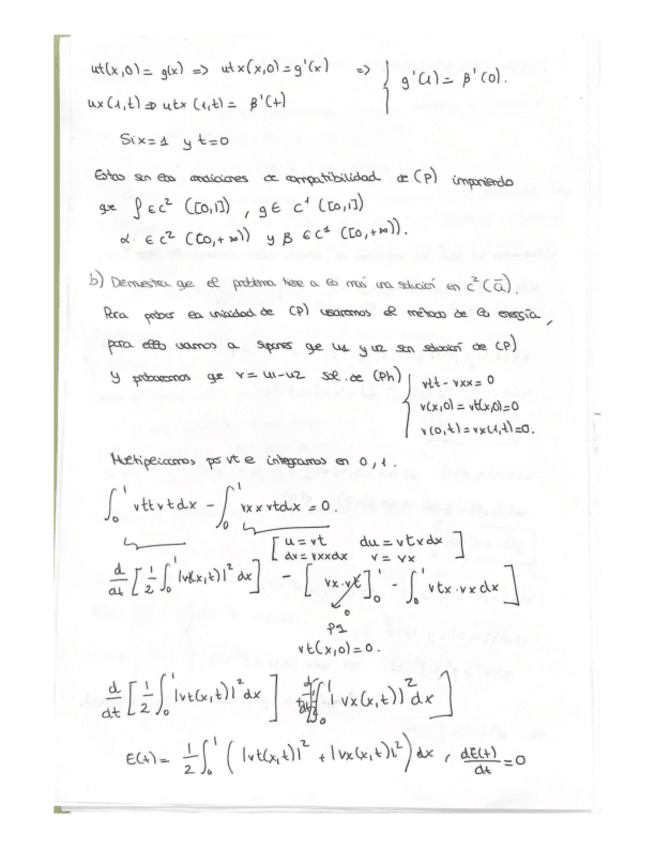 ut(x,0) = g(x) => utx(x,0) = g'(x) => { g'(1) = β'(0).
ux(1,t) => utx(1,t) = β'(t)
Si x=1 y t=0
Estas son las condiciones de compatibilidad de (P) imponiendo
que f ∈ C² ([0,1]), g ∈ C¹ ([0,1])
α ∈ C² ([0,+∞)) y β ∈ C¹ ([0,+∞)).
b) Demuestra que el problema tiene a lo más una solución en C²(Q̄).
Para probar la unicidad de (P) usaremos el método de la energía,
para ello vamos a suponer que u1 y u2 son solución de (P)
y probaremos que v = u1-u2 sol. de (Ph) { vtt - vxx = 0
v(x,0) = vt(x,0) = 0
v(0,t) = vx(1,t) = 0.
Multiplicamos por vt e integramos en 0,1.
∫₀¹ vtt vt dx - ∫₀¹ vxx vt dx = 0.
[ u = vt du = vtx dx
dv = vxx dx v = vx ]
d/dt [ 1/2 ∫₀¹ |vt(x,t)|² dx ] - [ vx·vt ]₀¹ - ∫₀¹ vtx·vx dx ]
0
pq
vt(x,0) = 0.
d/dt [ 1/2 ∫₀¹ |vt(x,t)|² dx ] d/dt [ ∫₀¹ | vx(x,t)|² dx ]
E(t) = 1/2 ∫₀¹ ( |vt(x,t)|² + |vx(x,t)|² ) dx , dE(t)/dt = 0